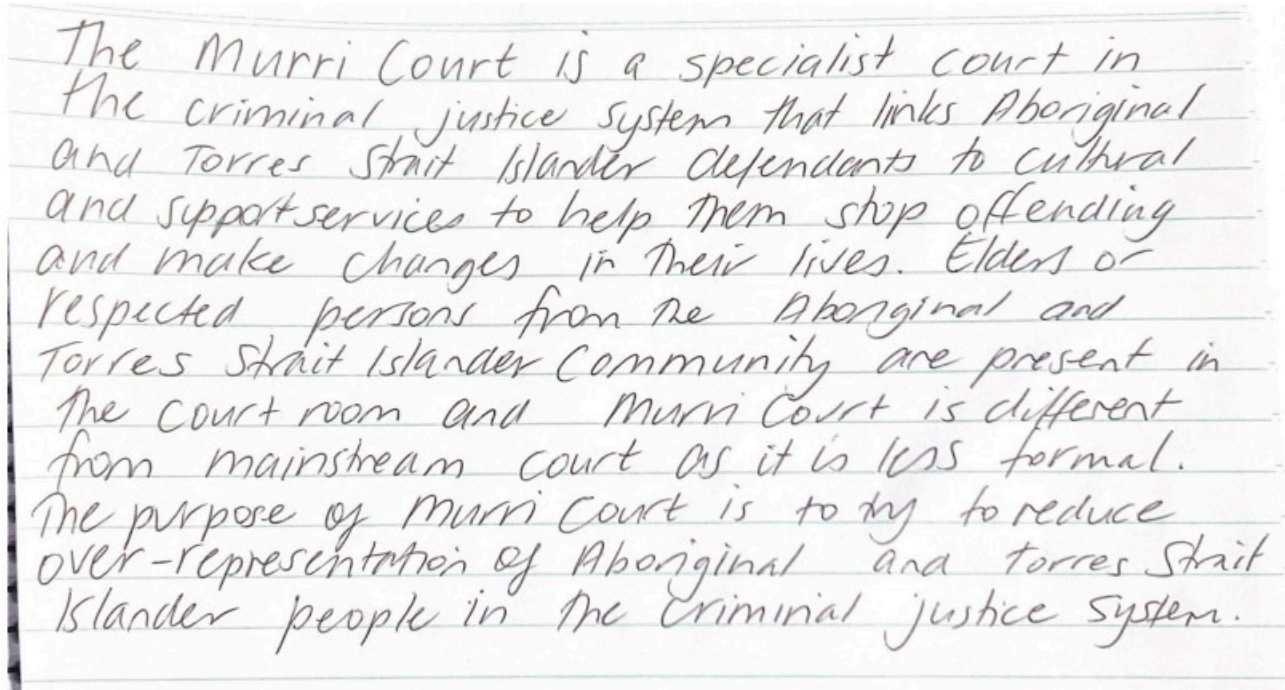 The Murri Court is a specialist court in
the criminal justice system that links Aboriginal
and Torres Strait Islander defendants to cultural
and support services to help them stop offending
and make changes in their lives. Elders or
respected persons from the Aboriginal and
Torres Strait Islander Community are present in
the court room and Murri Court is different
from mainstream court as it is less formal.
The purpose of Murri Court is to try to reduce
over-representation of Aboriginal and Torres Strait
Islander people in the criminal justice system.